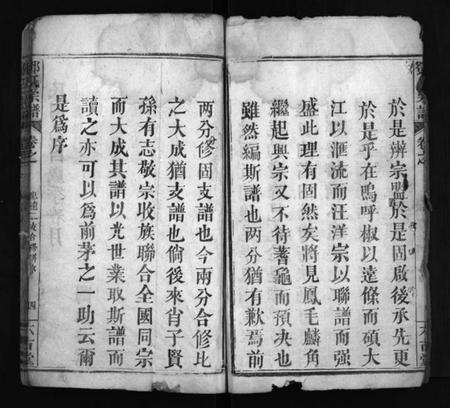 於是辨宗盟於是固啟後承先更
於是乎在嗚呼椒以遠條而碩大
江以滙流而汪洋宗以聯譜而強
盛此理有固然矣將見鳳毛麟角
繼起興宗又不待蓍龜而預决也
雖然編斯譜也两分猶有歉焉前
两分修固支譜也今兩分合修比
之大成猶支譜也倘後來肖子賢
孫有志敬宗收族聯合全國同宗
而大成其譜以光世業取斯譜而
讀之亦可以為前茅之一助云爾
是為序
氏宗譜
卷之
四
六